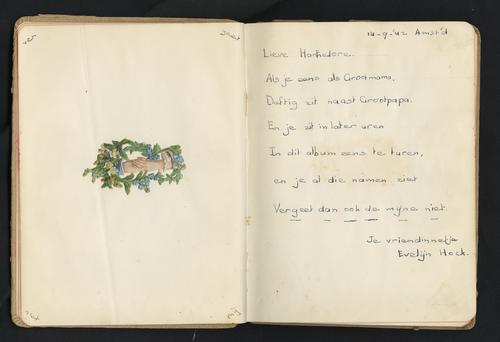 14-9-'42 Amst'd
Lieve
Als je eens als Grootmama,
Deftig zit naast Grootpapa.
En je zit in later uren
In dit album eens te turen,
en je al die namen ziet
Vergeet dan ook de mijne niet.
Je vriendinnetje
Evelijn Hock.